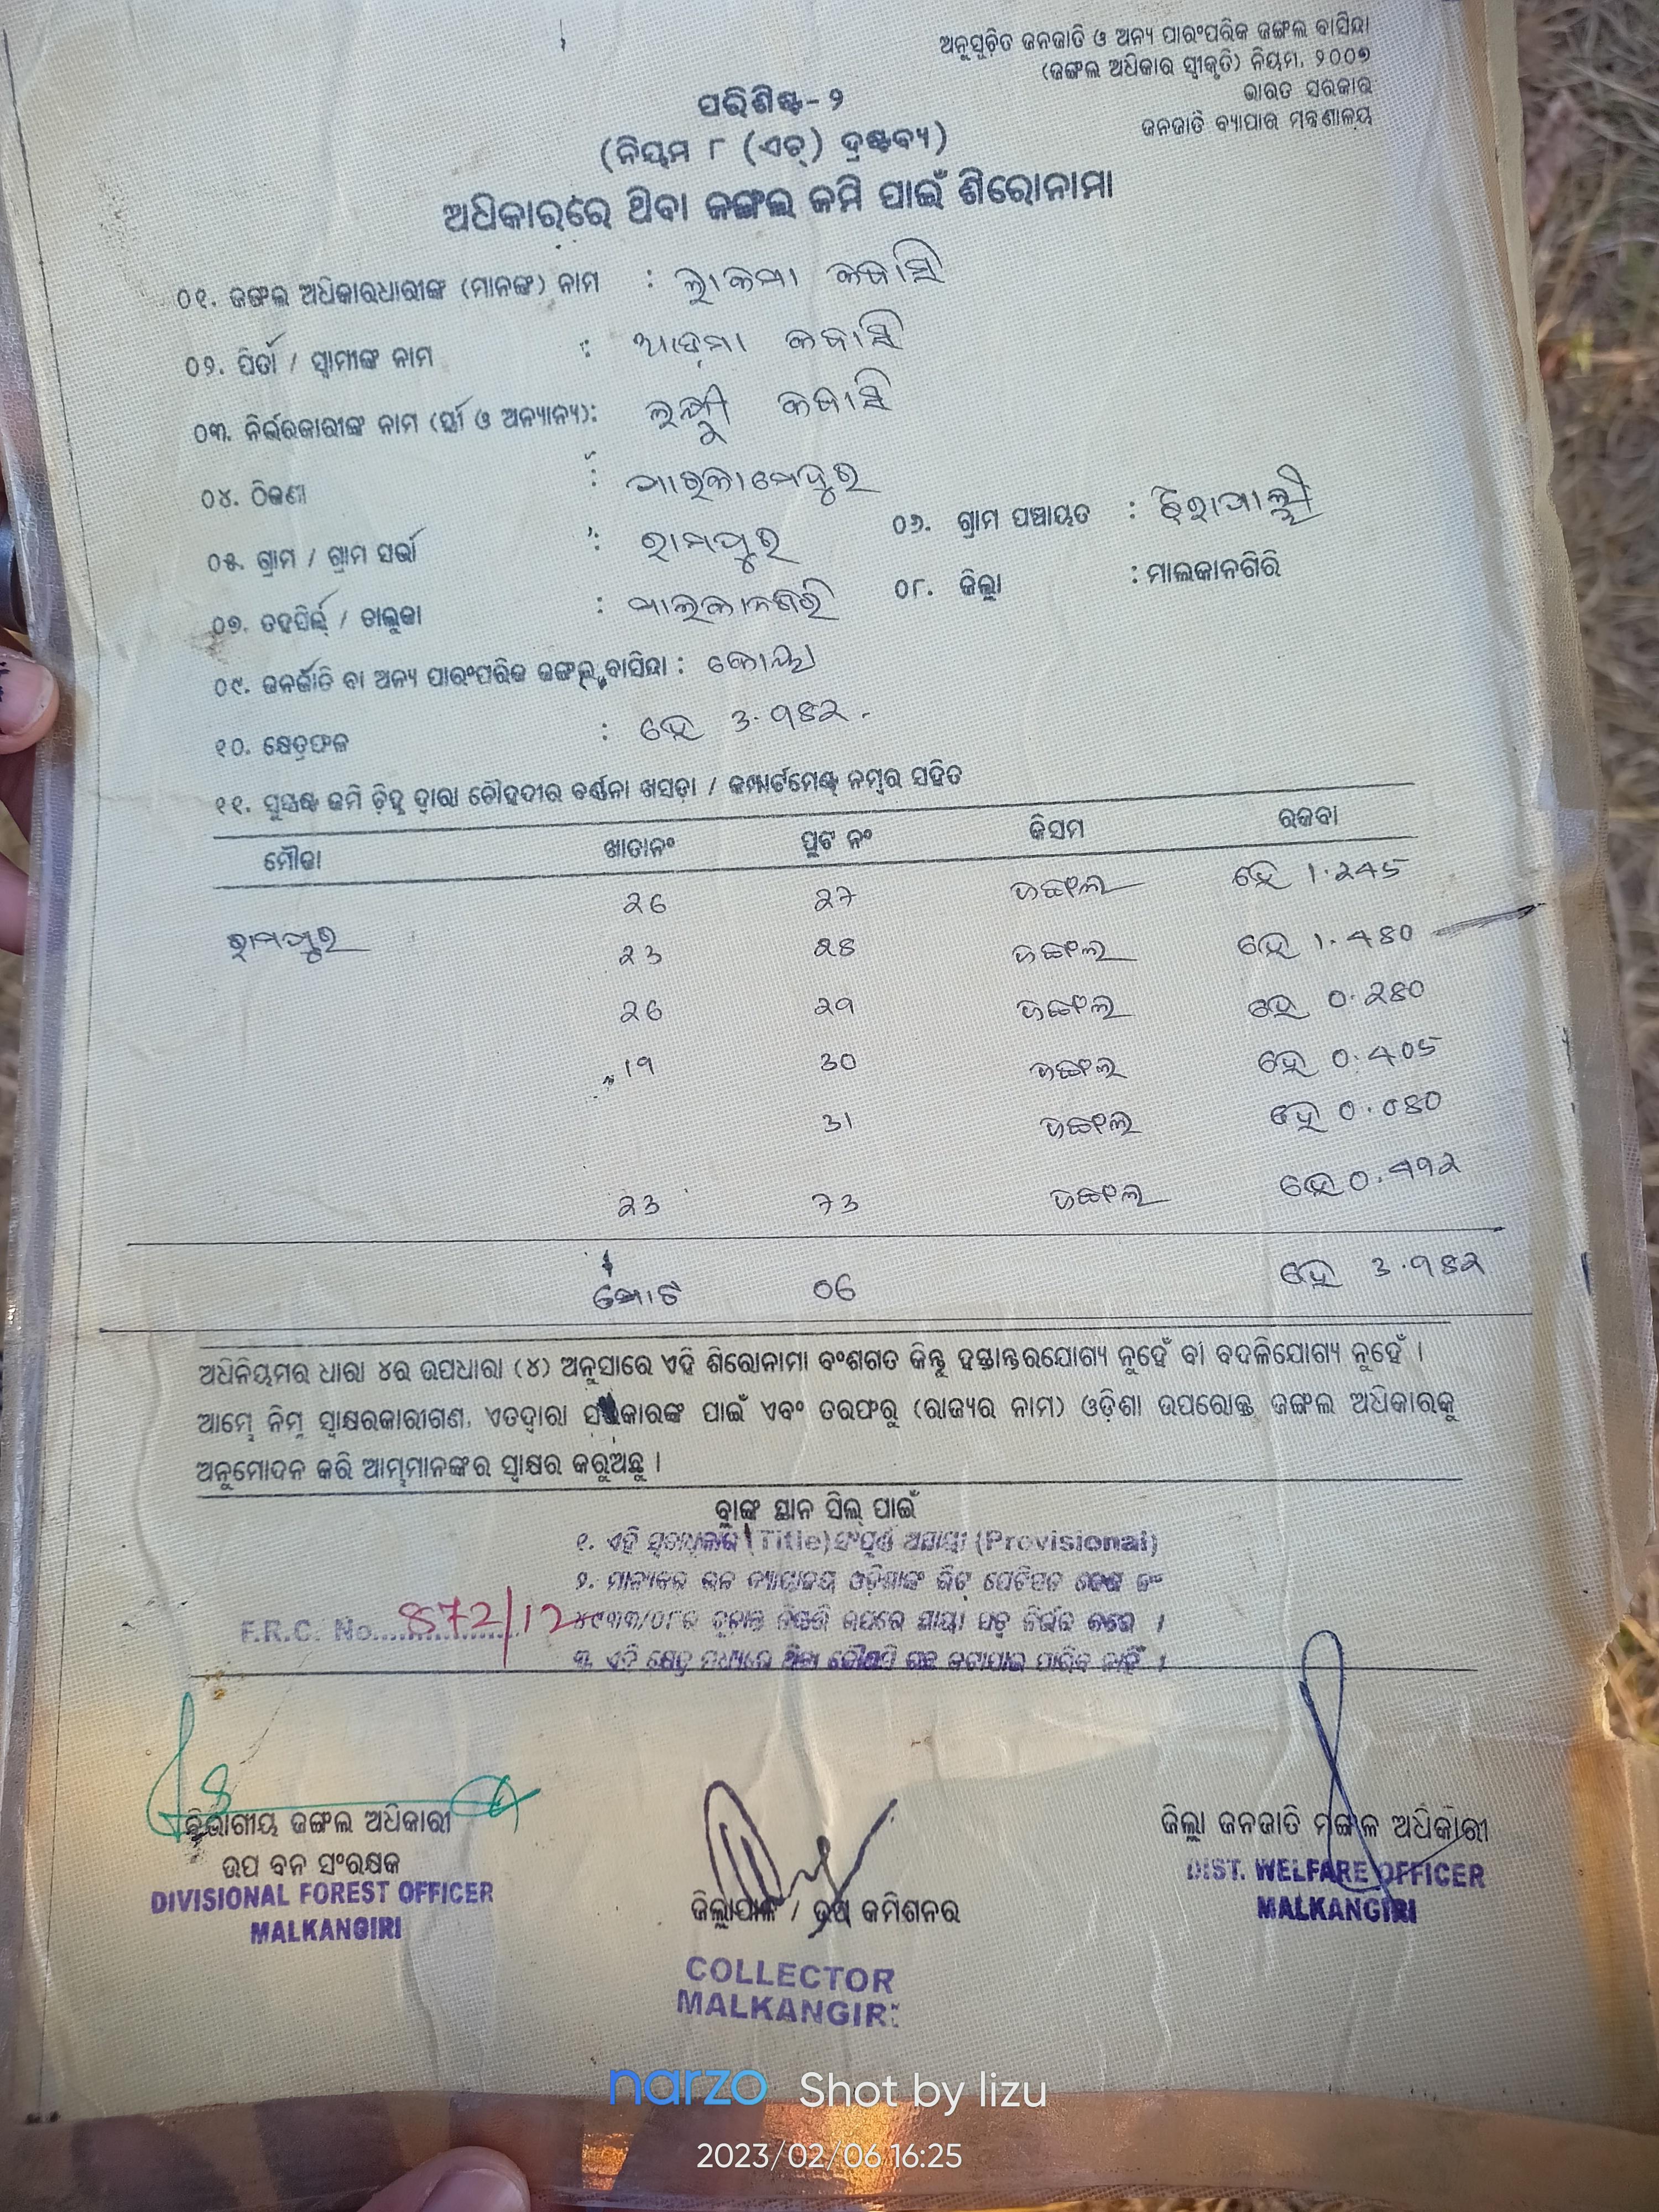 ଅନୁସୂଚିତ ଜନଜାତି ଓ ଅନ୍ୟ ପାରଂପରିକ ଜଙ୍ଗଲ ବାସିନ୍ଦା
(ଜଙ୍ଗଲ ଅଧିକାର ସ୍ୱୀକୃତି) ନିୟମ, ୨୦୦୭
ଭାରତ ସରକାର
ଜନଜାତି ବ୍ୟାପାର ମନ୍ତ୍ରଣାଳୟ
ପରିଶିଷ୍ଟ-୨
(ନିୟମ ୮ (ଏଚ୍) ଦ୍ରଷ୍ଟବ୍ୟ)
ଅଧିକାରରେ ଥିବା ଜଙ୍ଗଲ ଜମି ପାଇଁ ଶିରୋନାମା
୦୧. ଜଙ୍ଗଲ ଅଧିକାରଧାରୀଙ୍କ (ମାନଙ୍କ) ନାମ :
୦୨. ପିତା / ସ୍ୱାମୀଙ୍କ ନାମ :
୦୩. ନିର୍ଭରକାରୀଙ୍କ ନାମ (ସ୍ତ୍ରୀ ଓ ଅନ୍ୟାନ୍ୟ):
୦୪. ଠିକଣା :
୦୫. ଗ୍ରାମ / ଗ୍ରାମ ସଭା : ରାମପୁର ୦୬. ଗ୍ରାମ ପଞ୍ଚାୟତ :
୦୭. ତହସିଲ୍ / ତାଲୁକା : ମାଲକାନଗିରି ୦୮. ଜିଲ୍ଲା : ମାଲକାନଗିରି
୦୯. ଜନଜାତି ବା ଅନ୍ୟ ପାରଂପରିକ ଜଙ୍ଗଲ ବାସିନ୍ଦା : କୋୟା
୧୦. କ୍ଷେତ୍ରଫଳ : ହେ 3.982
୧୧. ସୁସ୍ପଷ୍ଟ ଜମି ଚିହ୍ନ ଦ୍ୱାରା ଚୌହଦୀର ବର୍ଣ୍ଣନା ଖସଡ଼ା / କମ୍ପାର୍ଟମେଣ୍ଟ ନମ୍ବର ସହିତ
ମୌଜା ଖାତାନଂ ପ୍ଲଟ ନଂ କିସମ ରକବା
26 27 ଜଙ୍ଗଲ ହେ 1.245
ରାମପୁର 23 28 ଜଙ୍ଗଲ ହେ 1.480
26 29 ଜଙ୍ଗଲ ହେ 0.280
19 30 ଜଙ୍ଗଲ ହେ 0.405
31 ଜଙ୍ଗଲ ହେ 0.080
23 73 ଜଙ୍ଗଲ ହେ 0.492
ମୋଟ 06 ହେ 3.982
ଅଧିନିୟମର ଧାରା ୪ର ଉପଧାରା (୪) ଅନୁସାରେ ଏହି ଶିରୋନାମା ବଂଶଗତ କିନ୍ତୁ ହସ୍ତାନ୍ତରଯୋଗ୍ୟ ନୁହେଁ ବା ବଦଳିଯୋଗ୍ୟ ନୁହେଁ ।
ଆମ୍ଭେ ନିମ୍ନ ସ୍ୱାକ୍ଷରକାରୀଗଣ, ଏତଦ୍ୱାରା ସରକାରଙ୍କ ପାଇଁ ଏବଂ ତରଫରୁ (ରାଜ୍ୟର ନାମ) ଓଡ଼ିଶା ଉପରୋକ୍ତ ଜଙ୍ଗଲ ଅଧିକାରକୁ
ଅନୁମୋଦନ କରି ଆମ୍ଭମାନଙ୍କର ସ୍ୱାକ୍ଷର କରୁଅଛୁ ।
ବ୍ଲାଙ୍କ ସ୍ଥାନ ସିଲ୍ ପାଇଁ
୧. ଏହି (Title) ସଂପୂର୍ଣ୍ଣ ଅସ୍ଥାୟୀ (Provisional)
୨. ମାନ୍ୟବର ଓଡ଼ିଶାଙ୍କ ରିଟ୍ ପିଟିସନ କେଶ ନଂ
F.R.C. No. 872/12 ୪୯୩୩/୦୮ର ନିର୍ଭର କରେ ।
୩. ଏହି କ୍ଷେତ୍ର ମଧ୍ୟରେ ଥିବା କୌଣସି ଗଛ କଟାଯାଇ ପାରିବ ନାହିଁ ।
ବିଭାଗୀୟ ଜଙ୍ଗଲ ଅଧିକାରୀ
ଉପ ବନ ସଂରକ୍ଷକ
DIVISIONAL FOREST OFFICER
MALKANGIRI
ଜିଲ୍ଲାପାଳ / ଉପ କମିଶନର
COLLECTOR
MALKANGIRI
ଜିଲ୍ଲା ଜନଜାତି ମଙ୍ଗଳ ଅଧିକାରୀ
DIST. WELFARE OFFICER
MALKANGIRI
narzo Shot by lizu
2023/02/06 16:25